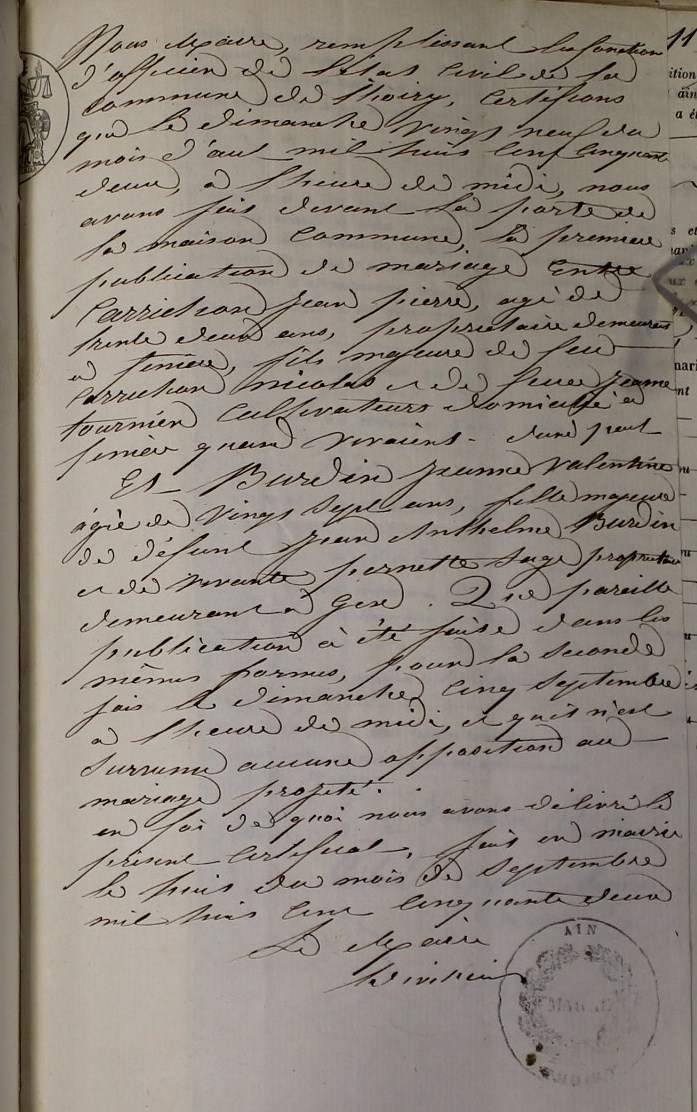 Nous Maire, remplissant la fonction
d'officier de l'Etat Civil de la
Commune de Thoiry, Certifions
que le dimanche vingt neuf du
mois d'aut mil huit cent cinquante
deux, à l'heure de midi, nous
avons fait devant la porte de
la maison Commune, la premiere
publication de mariage Entre
Carrichon Jean pierre, agé de
trente deux ans, propriétaire demeurant
à fenière, fils majeure de feu
Carrichon nicolas et de feue Jeanne
tournier Cultivateurs domicilié à
fenière quand vivaient - d'une part
Et Burdin Jeanne Valentine
agée de vingt sept ans, fille majeure
de défunt Jean Anthelme Burdin
et de vivante pernette Sage propriétaire
demeurant à Gex. Que pareille
publication à été faite dans les
mêmes formes, pour la seconde
fois le dimanche Cinq Septembre
à l'heure de midi, et qu'il n'est
Survenu aucune opposition au
mariage projeté.
en foi de quoi nous avons délivré le
présent Certificat, fait en mairie
le huit du mois de Septembre
mil huit cent Cinquante deux
Le Maire
AIN
11
ition
ain
a ét
s et
mari
nt